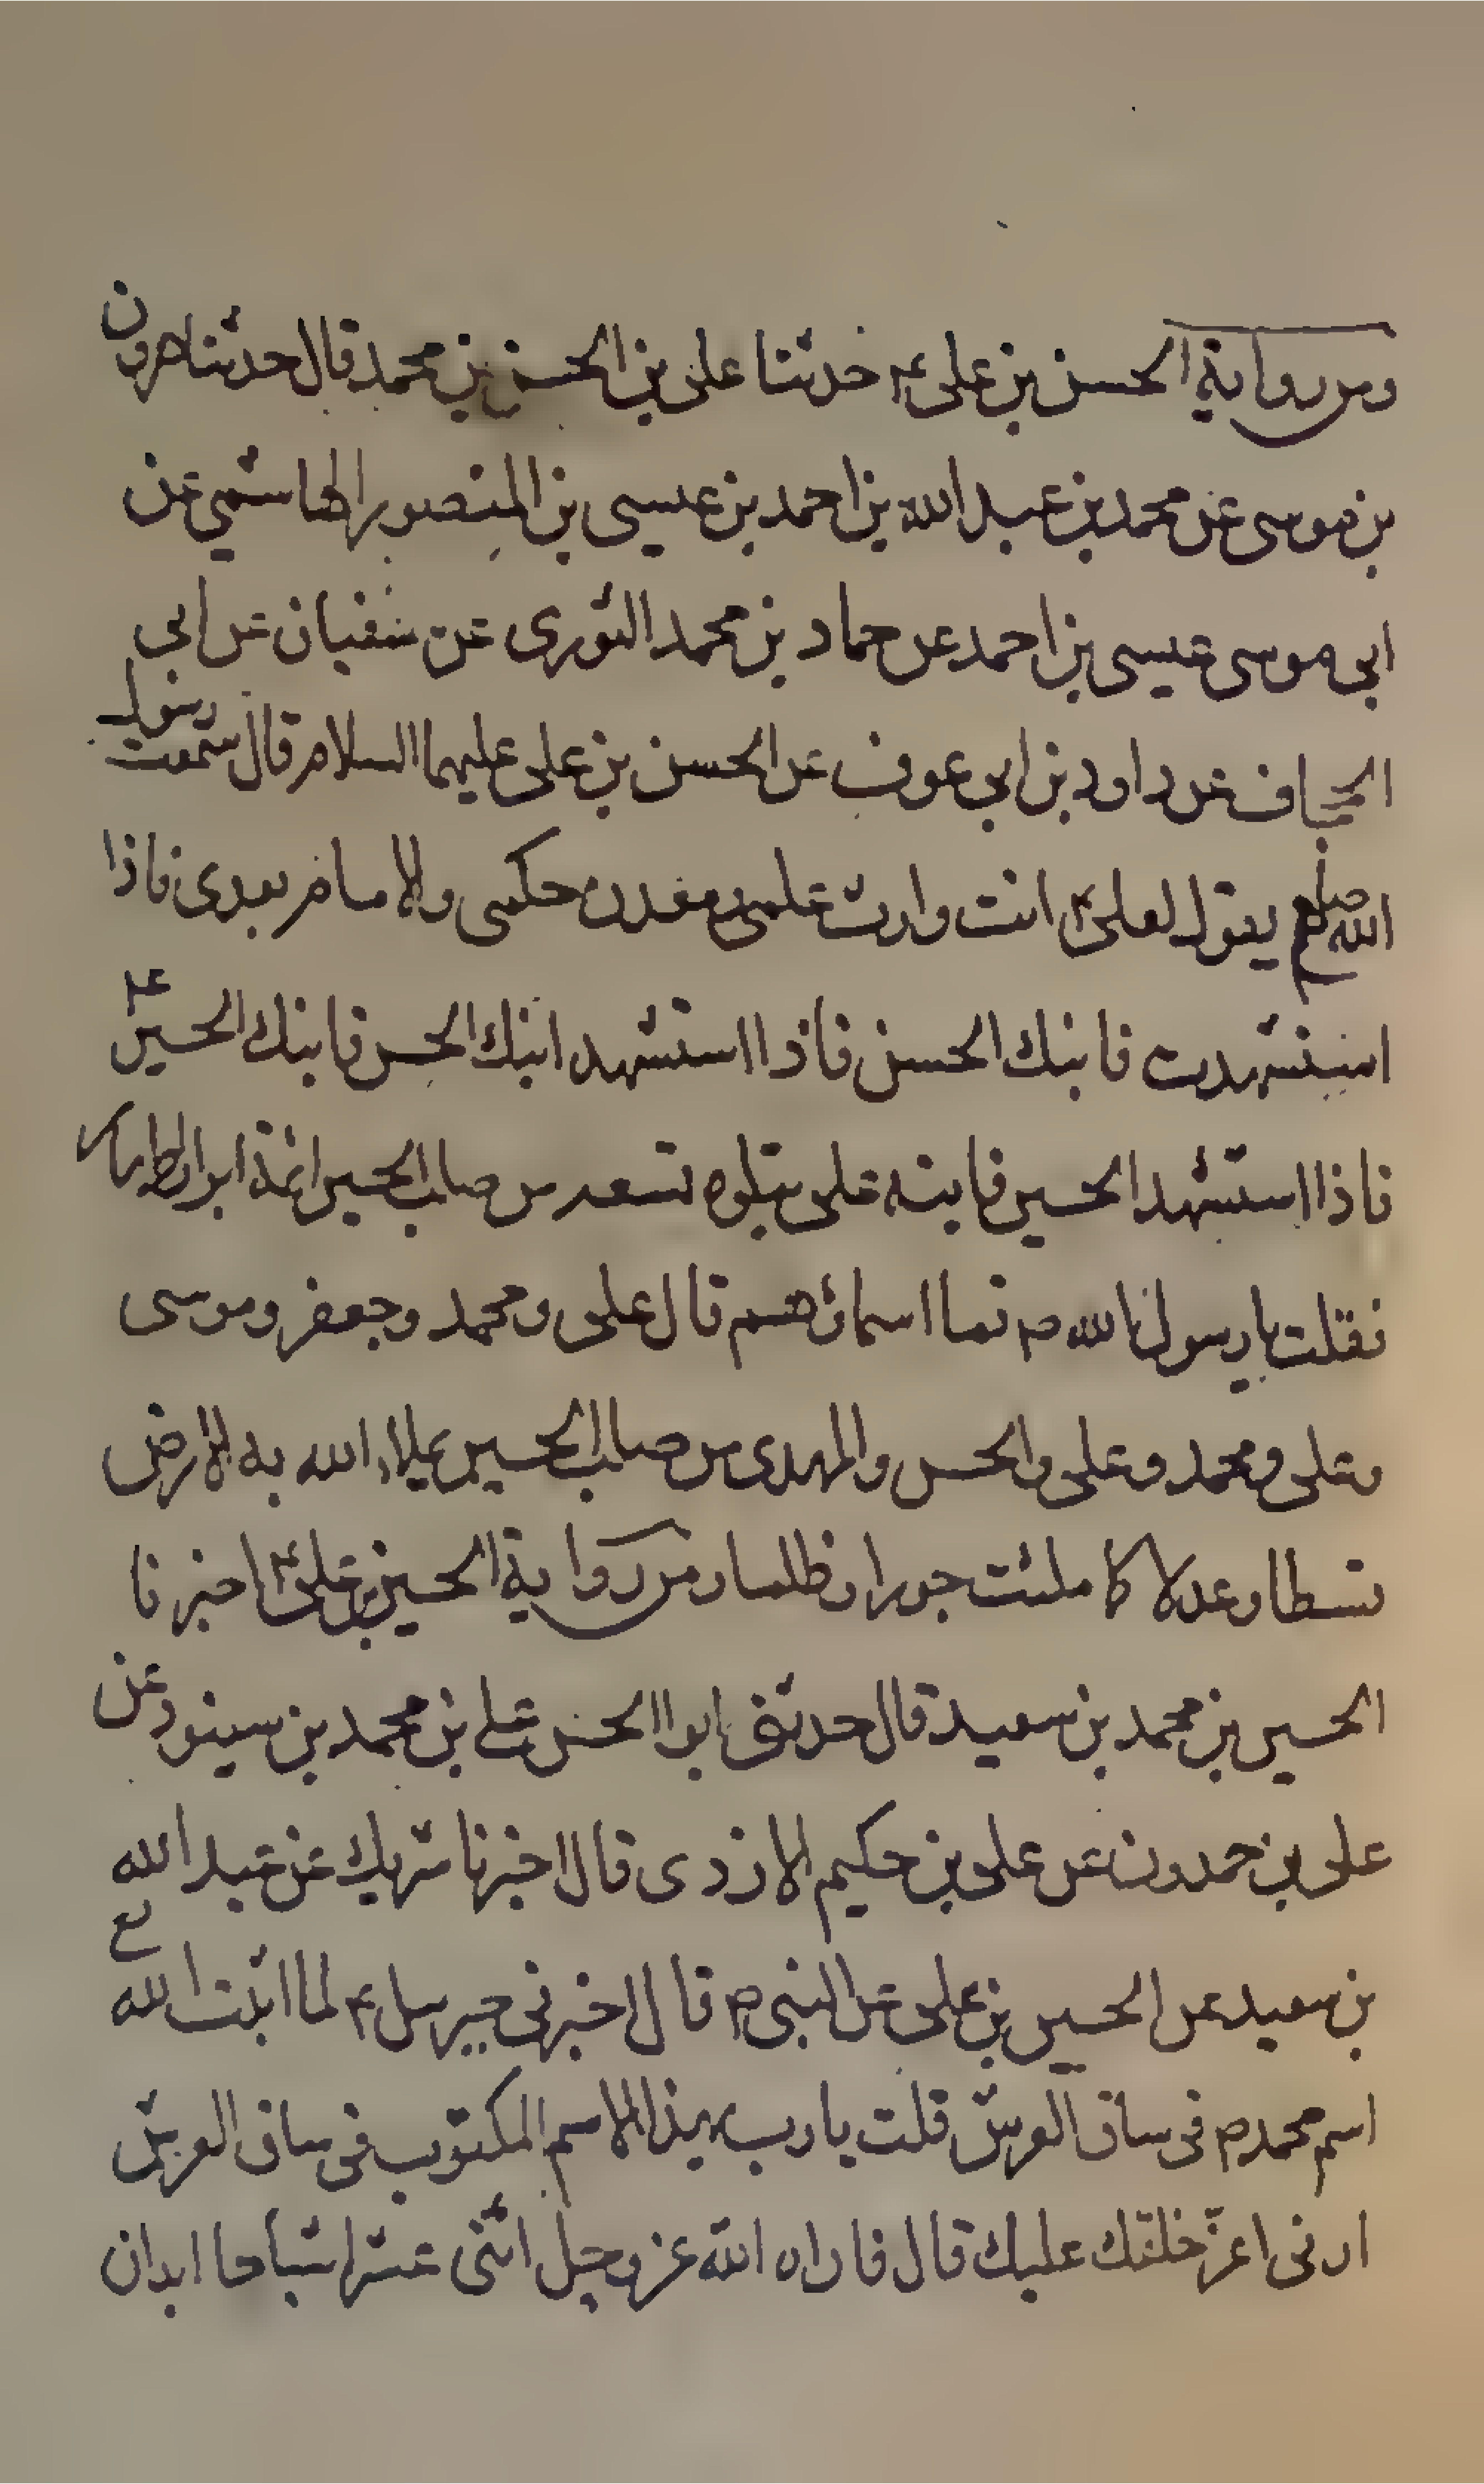 ومن رواية الحسن بن علي ع‍م حدثنا علي بن الحسن بن محمد قال حدثنا هرون
بن موسى عن محمد بن عبد الله بن احمد بن عيسى بن المنصور الهاشمي عن
ابي موسى عيسى بن احمد عن حماد بن محمد الثورى عن سفيان عن ابي
الجحاف عن داود بن ابي عوف عن الحسن بن علي عليهما السلام قال سمعت رسول
الله صلعم يقول لعلي ع انت وارث علمي ومعدن حكمي والامام بعدى فاذا
استشهدت فابنك الحسن فاذا استشهد ابنك الحسن فابنك الحسين ع‍م
فاذا استشهد الحسين فابنه علي يتلوه تسعة من صلب الحسين ائمة ابرار اطهار
فقلت يا رسول الله ص فما اسمائهم قال علي ومحمد وجعفر وموسى
وعلي ومحمد وعلي والحسن والمهدى من صلب الحسين يملاء الله به الارض
قسطا وعدلا كما ملئت جورا وظلما ومن رواية الحسين بن علي ع اخبرنا
الحسين بن محمد بن سعيد قال حدثني ابو الحسن علي بن محمد بن سينود عن
علي بن حمدون عن علي بن حكيم الازدى قال اخبرنا شريك عن عبد الله
بن سعيد عن الحسين بن علي عن النبي ص قال اخبرني جبرئيل ع‍م لما اثبت الله تع
اسم محمد ص في ساق العرش قلت يا رب هذا الاسم المكتوب في ساق العرش
ارني اعز خلقك عليك قال فاراه الله عز وجل اثنى عشر اشباحا ابدان